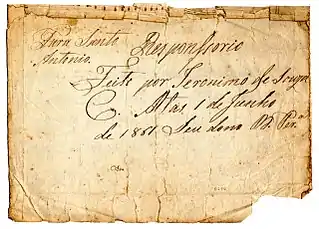 Para Santo
Antonio.
Responssorio
Feito por Jeronimo de Souza
C. Mas 1 de Junho
de 1881 Seu dono